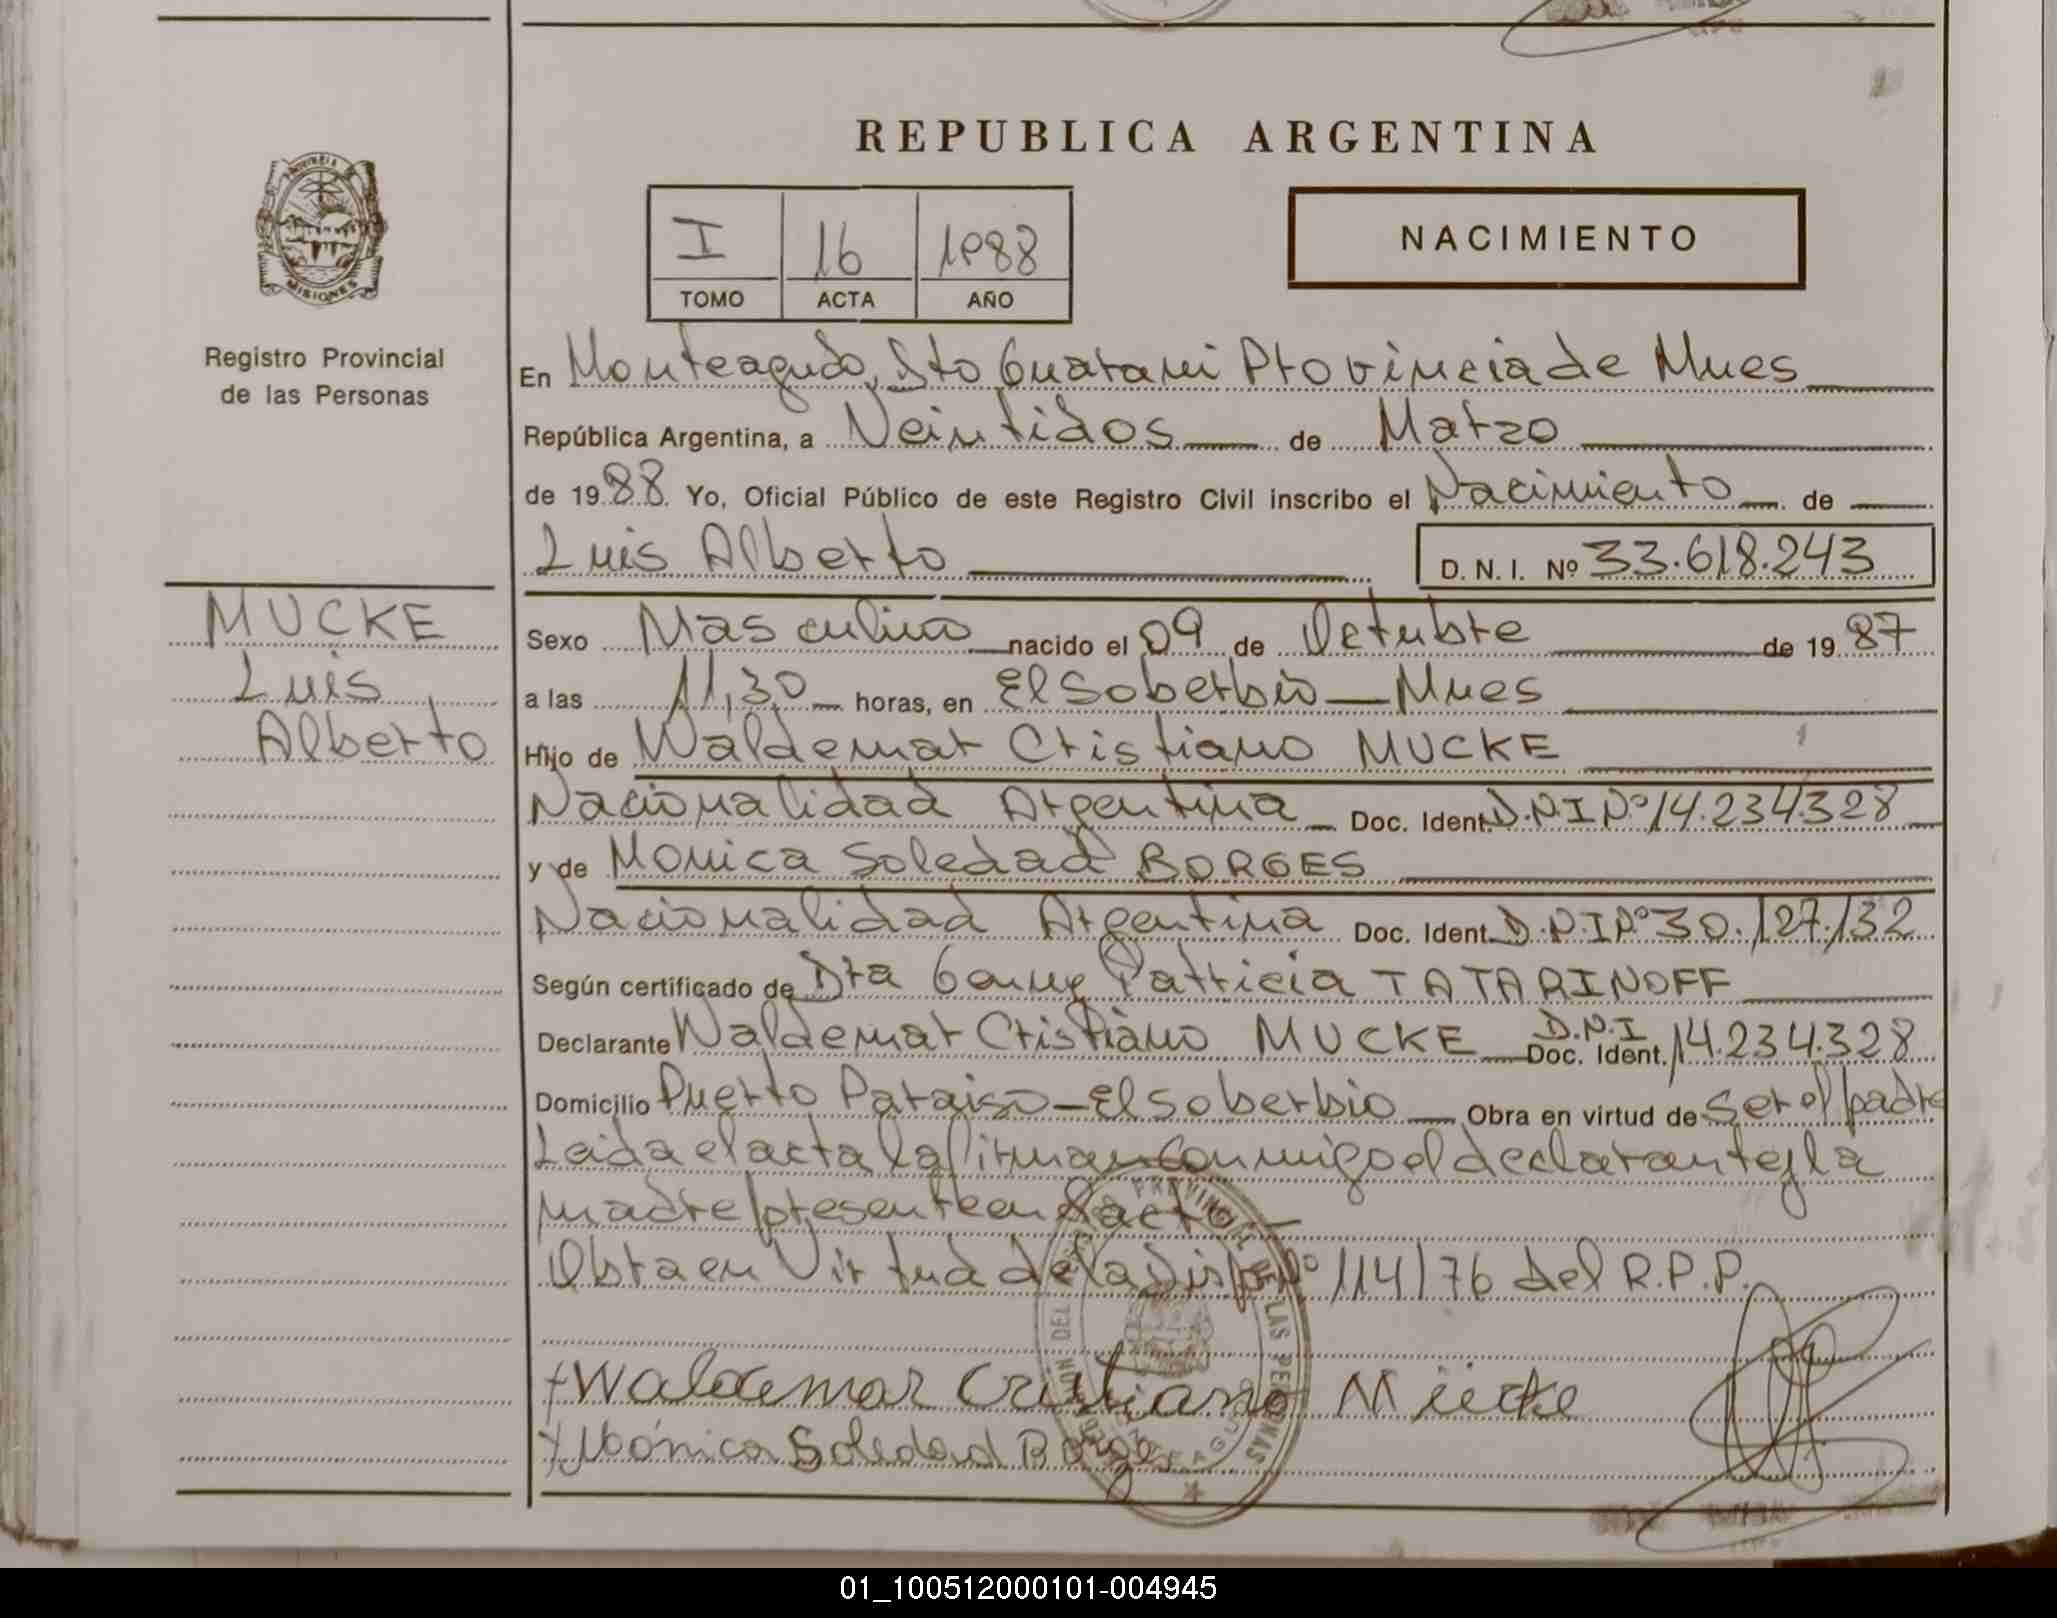 REPUBLICA ARGENTINA
PROVINCIA
MISIONES
Registro Provincial
de las Personas
I 16 1988
TOMO ACTA AÑO
NACIMIENTO
En Monteagudo, Dto Guarani Provincia de Mnes
República Argentina, a Veintidos de Marzo
de 1988 Yo, Oficial Público de este Registro Civil inscribo el Nacimiento de
Luis Alberto D. N. I. Nº 33.618.243
MUCKE
Luis
Alberto
Sexo Masculino nacido el 09 de Octubre de 1987
a las 11,30 horas, en El Soberbio — Mnes
Hijo de Waldemar Cristiano MUCKE
Nacionalidad Argentina Doc. Ident. D.N.I Nº 14.234.328
y de Monica Soledad BORGES
Nacionalidad Argentina Doc. Ident. D.N.I Nº 30.127.132
Según certificado de Dra Patricia TATARINOFF
Declarante Waldemar Cristiano MUCKE Doc. Ident. D.N.I 14.234.328
Domicilio Puerto Paraiso — El Soberbio Obra en virtud de ser el padre
Leida el acta la firman conmigo el declarante y la
madre presente en el acto.—
Obra en Virtud de la Disp. Nº 114/76 del R.P.P.
+ Waldemar Cristiano Mücke
+ Mónica Soledad Borges
01_100512000101-004945